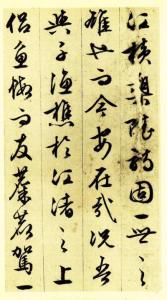 江橫槊賦詩固一世之
雄也而今安在哉況吾
與子漁樵於江渚之上
侶魚蝦而友麋鹿駕一